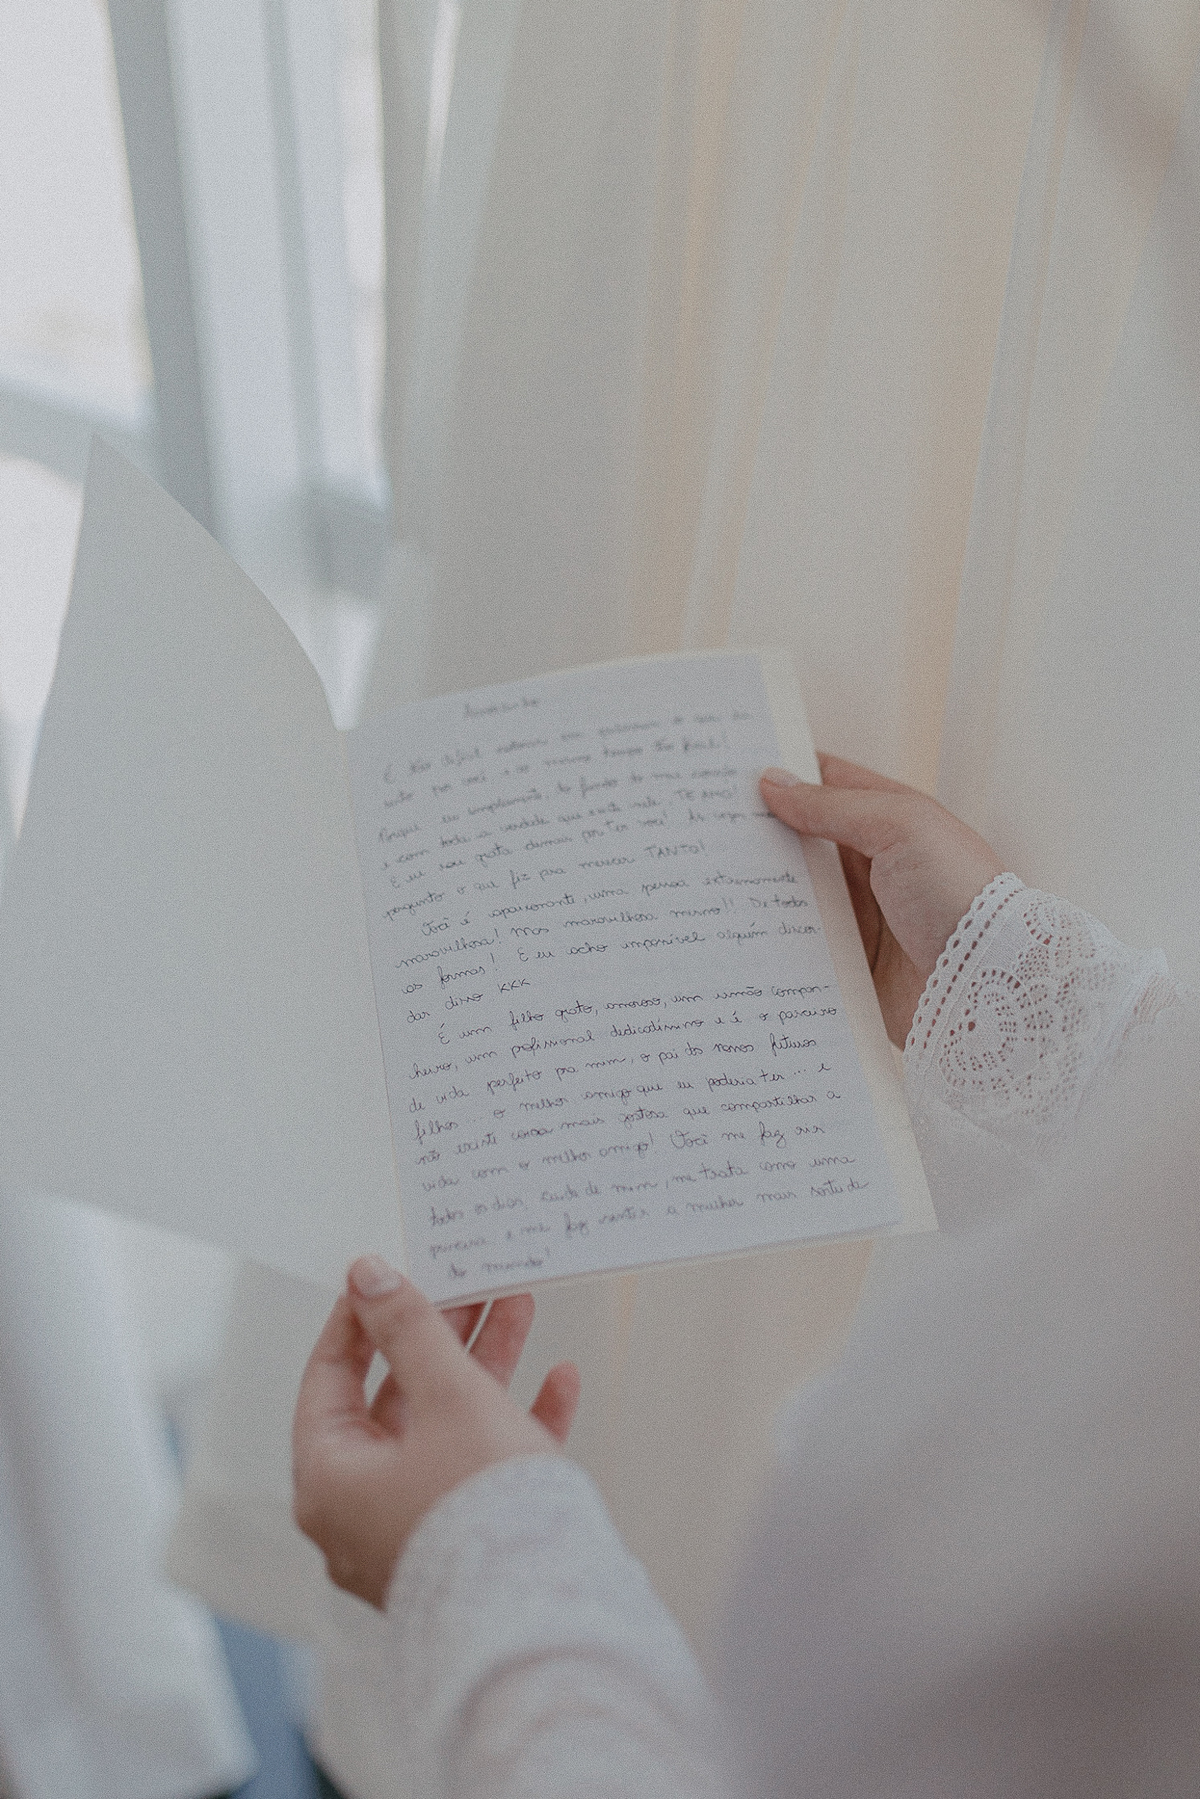 É tão difícil colocar em palavras o que eu
sinto por você e ao mesmo tempo tão fácil!
Porque eu simplesmente, do fundo do meu coração
e com toda a verdade que existe nele, TE AMO!
E eu sou grata demais por ter você! Às vezes me
pergunto o que fiz pra merecer TANTO!
Você é apaixonante, uma pessoa extremamente
maravilhosa! Mas maravilhosa mesmo!! De todas
as formas! E eu acho impossível alguém discor-
dar disso KKK
É um filho grato, amoroso, um irmão compan-
heiro, um profissional dedicadíssimo e é o parceiro
de vida perfeito pra mim, o pai dos nossos futuros
filhos... o melhor amigo que eu poderia ter... e
não existe coisa mais gostosa que compartilhar a
vida com o melhor amigo! Você me faz rir
todos os dias, cuida de mim, me trata como uma
parceira e me faz sentir a mulher mais sortuda
do mundo!